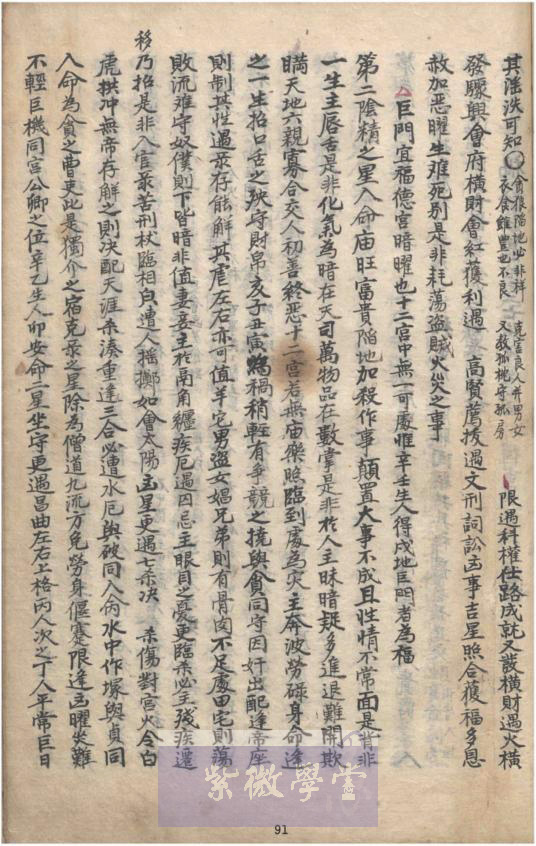 其淫泆可知〇貪狼陷地必非祥 衣食雖豊也不良 克害良人并男女 又教孤枕守孤房 限遇科權仕路成就又發橫財遇火橫
發驟興會府橫財會紅獲利遇 高賢薦拔遇文刑詞訟凶事吉星照合獲福多恩
赦加惡曜生难死别是非耗蕩盗賊火災之事
巨門宜福德宮暗曜也十二宮中無一可處惟辛壬生人得戌地巨門者為福
第二陰精之星入命庙旺富貴陷地加殺作事顛置大事不成且性情不常面是背非
一生主唇舌是非化氣為暗在天司萬物品在數掌是非於人主昧暗疑多進退難開欺
瞞天地六親寡合交人初善終惡十二宮若無庙樂照臨到處為灾主奔波勞碌身命逢
之一生招口舌之殃守財帛亥子丑寅禍稍輕有爭競之擾與貪同守因奸出配逢帝座
則制其性遇彔存能解其虐左右亦可值羊宅男盗女娼兄弟則有骨肉不足處田宅則蕩
敗流难守奴僕則下皆暗非值妻妾主於鬲角纏疾厄遇囚忌主眼目之憂更臨杀必主殘疾遷
移乃招是非入官彔苦刑杖臨相皃遭人搖擲如會太陽凶星更遇七杀决 杀傷對宮火令白
虎拱冲無帝存解之則决配天涯杀湊重逢三合必遭水厄與破同入丙水中作塚與貞同
入命為貪之曹吏此是獨介之宿克彔之星除為僧道九流方免勞身偃蹇限逢凶曜災难
不輕巨機同宮公卿之位辛乙生人卯安命二星坐守更遇昌曲左右上格丙人次之丁人平常巨日
紫微學堂
91